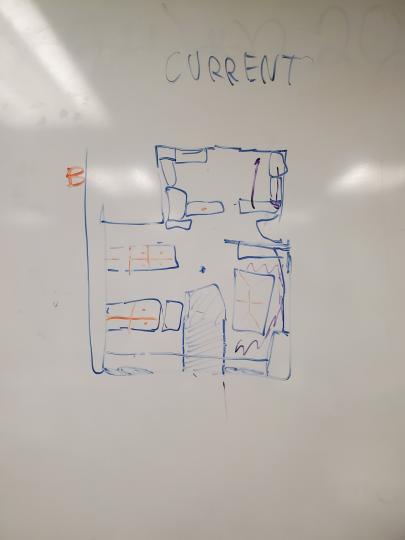 CURRENT
B